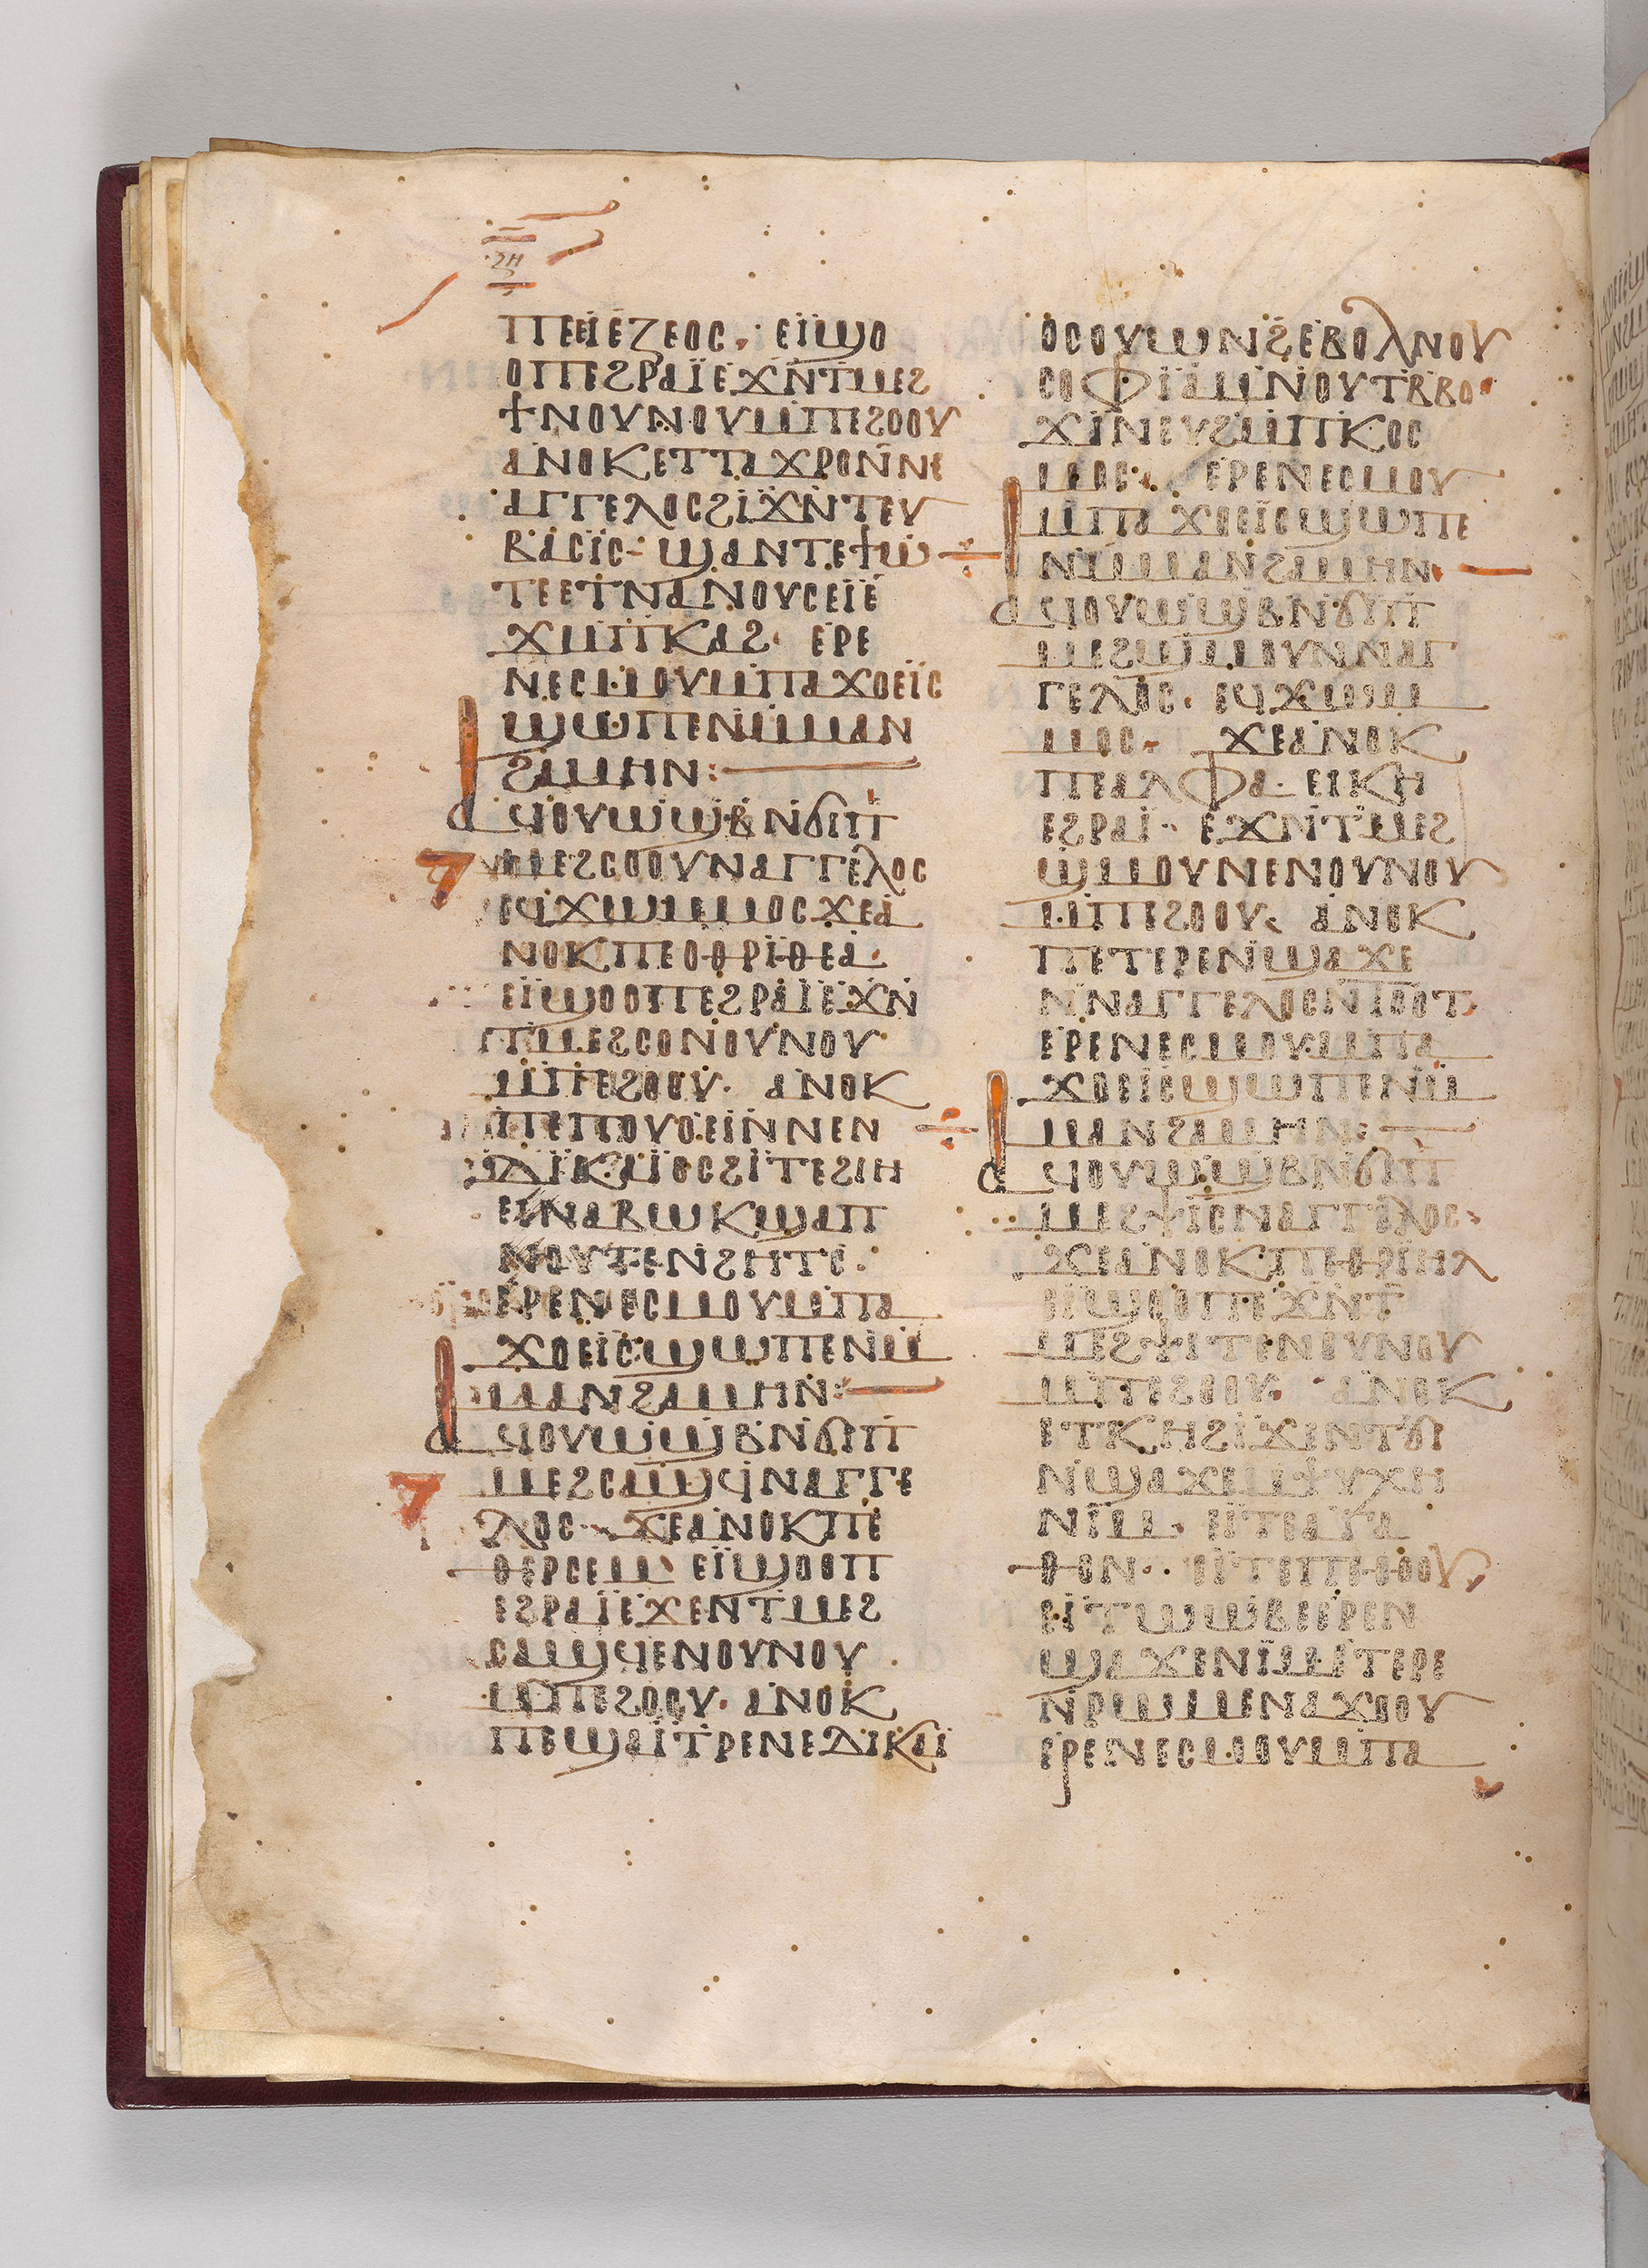 ⲍⲏ
ⲡⲉⲓⲉⲍⲉⲟⲥ· ⲉⲓϣⲟ
ⲟⲡⲉϩⲣⲁⲓⲉϫⲛⲧⲙⲉϩ
ϯⲛⲟⲩⲛⲟⲩⲙⲡⲉϩⲟⲟⲩ
ⲁⲛⲟⲕⲉⲧⲧⲁϫⲣⲟⲛⲛⲉ
ⲁⲅⲅⲉⲗⲟⲥϩⲓϫⲛⲧⲉⲩ
ⲃⲁⲥⲓⲥ ϣⲁⲛⲧⲉϯⲱ
ⲧⲉⲉⲧⲛⲁⲛⲟⲩⲥⲉⲓⲉ
ϫⲙⲡⲕⲁϩ· ⲉⲣⲉ
ⲛⲉⲥⲙⲟⲩⲙⲡⲁϫⲟⲉⲓⲥ
ϣⲱⲡⲉⲛⲙⲙⲁⲛ
ϩⲁⲙⲏⲛ:
ⲁϥⲟⲩⲱϣⲃⲛϭⲓⲡ
ⲙⲉϩⲥⲟⲟⲩⲛⲁⲅⲅⲉⲗⲟⲥ
ⲉϥϫⲱⲙⲙⲟⲥϫⲉⲁ
ⲛⲟⲕⲡⲉⲟⲑⲣⲓⲑⲉⲁ·
ⲉⲓϣⲟⲟⲡⲉϩⲣⲁⲓⲉϫⲛ
ⲧⲙⲉϩⲥⲟⲛⲟⲩⲛⲟⲩ
ⲙⲡⲉϩⲟⲟⲩ· ⲁⲛⲟⲕ
ⲡⲉⲡⲟⲩⲟⲉⲓⲛⲛⲉⲛ
ⲇⲓⲕⲁⲓⲟⲥϩⲓⲧⲉϩⲓⲏ
ⲉⲓⲛⲁⲃⲱⲕϣⲁⲡ
ⲛⲟⲩⲧⲉⲛϩⲏⲧⲥ·
ⲉⲣⲉⲛⲉⲥⲙⲟⲩⲙⲡⲁ
ϫⲟⲉⲓⲥϣⲱⲡⲉⲛⲙ
ⲙⲁⲛϩⲁⲙⲏⲛ:
ⲁϥⲟⲩⲱϣⲃⲛϭⲓⲡ
ⲙⲉϩⲥⲁϣϥⲛⲁⲅⲅⲉ
ⲗⲟⲥ· ϫⲉⲁⲛⲟⲕⲡⲉ
ⲑⲉⲣⲥⲉⲙ ⲉⲓϣⲟⲟⲡ
ⲉϩⲣⲁⲓⲉϫⲉⲛⲧⲙⲉϩ
ⲥⲁϣϥⲉⲛⲟⲩⲛⲟⲩ
ⲙⲡⲉϩⲟⲟⲩ· ⲁⲛⲟⲕ
ⲡⲉϣⲁⲓⲧⲣⲉⲛⲉⲇⲓⲕⲁⲓ
ⲟⲥⲟⲩⲱⲛϩⲉⲃⲟⲗⲛⲟⲩ
ⲥⲟⲫⲓⲁⲙⲛⲟⲩⲧⲃⲃⲟ·
ϫⲓⲛⲉⲩϩⲙⲡⲕⲟⲥ
ⲙⲟⲥ· ⲉⲣⲉⲛⲉⲥⲙⲟⲩ
ⲙⲡⲁϫⲟⲉⲓⲥϣⲱⲡⲉ
ⲛⲙⲙⲁⲛϩⲁⲙⲏⲛ
ⲁϥⲟⲩⲱϣⲃⲛϭⲓⲡ
ⲙⲉϩϣⲙⲟⲩⲛⲛⲁⲅ
ⲅⲉⲗⲟⲥ· ⲉϥϫⲱⲙ
ⲙⲟⲥ· ϫⲉⲁⲛⲟⲕ
ⲡⲉⲁⲗⲫⲁ· ⲉⲓⲕⲏ
ⲉϩⲣⲁⲓ· ⲉϫⲛⲧⲙⲉϩ
ϣⲙⲟⲩⲛⲉⲛⲟⲩⲛⲟⲩ
ⲙⲡⲉϩⲟⲟⲩ· ⲁⲛⲟⲕ
ⲡⲉⲧⲉⲣⲉⲛϣⲁϫⲉ
ⲛⲛⲁⲅⲅⲉⲗⲟⲥⲛⲧⲟⲟⲧ
ⲉⲣⲉⲛⲉⲥⲙⲟⲩⲙⲡⲁ
ϫⲟⲉⲓⲥϣⲱⲡⲉⲛⲙ
ⲙⲁⲛϩⲁⲙⲏⲛ:
ⲁϥⲟⲩⲱϣⲃⲛϭⲓⲡ
ⲙⲉϩⲯⲓⲥⲛⲁⲅⲅⲉⲗⲟⲥ·
ϫⲉⲁⲛⲟⲕⲡⲉⲑⲣⲓⲏⲗ
ⲉⲓϣⲟⲟⲡⲉϫⲛⲧ
ⲙⲉϩⲯⲓⲧⲉⲛⲟⲩⲛⲟⲩ
ⲙⲡⲉϩⲟⲟⲩ· ⲁⲛⲟⲕ
ⲉⲧⲕⲏϩⲓϫⲓⲛⲧϭⲓ
ⲛϣⲁϫⲉⲙⲯⲩⲭⲏ
ⲛⲓⲙ· ⲉⲓⲧⲉⲁⲅⲁ
ⲑⲟⲛ· ⲉⲓⲧⲉⲡⲉⲑⲟⲟⲩ
ⲉⲓⲧⲱⲱⲃⲉⲉⲣⲉⲛ
ϣⲁϫⲉⲛⲓⲙⲉⲧⲉⲣⲉ
ⲛⲣⲱⲙⲉⲛⲁϫⲟⲟⲩ
ⲉⲣⲉⲛⲉⲥⲙⲟⲩⲙⲡⲁ